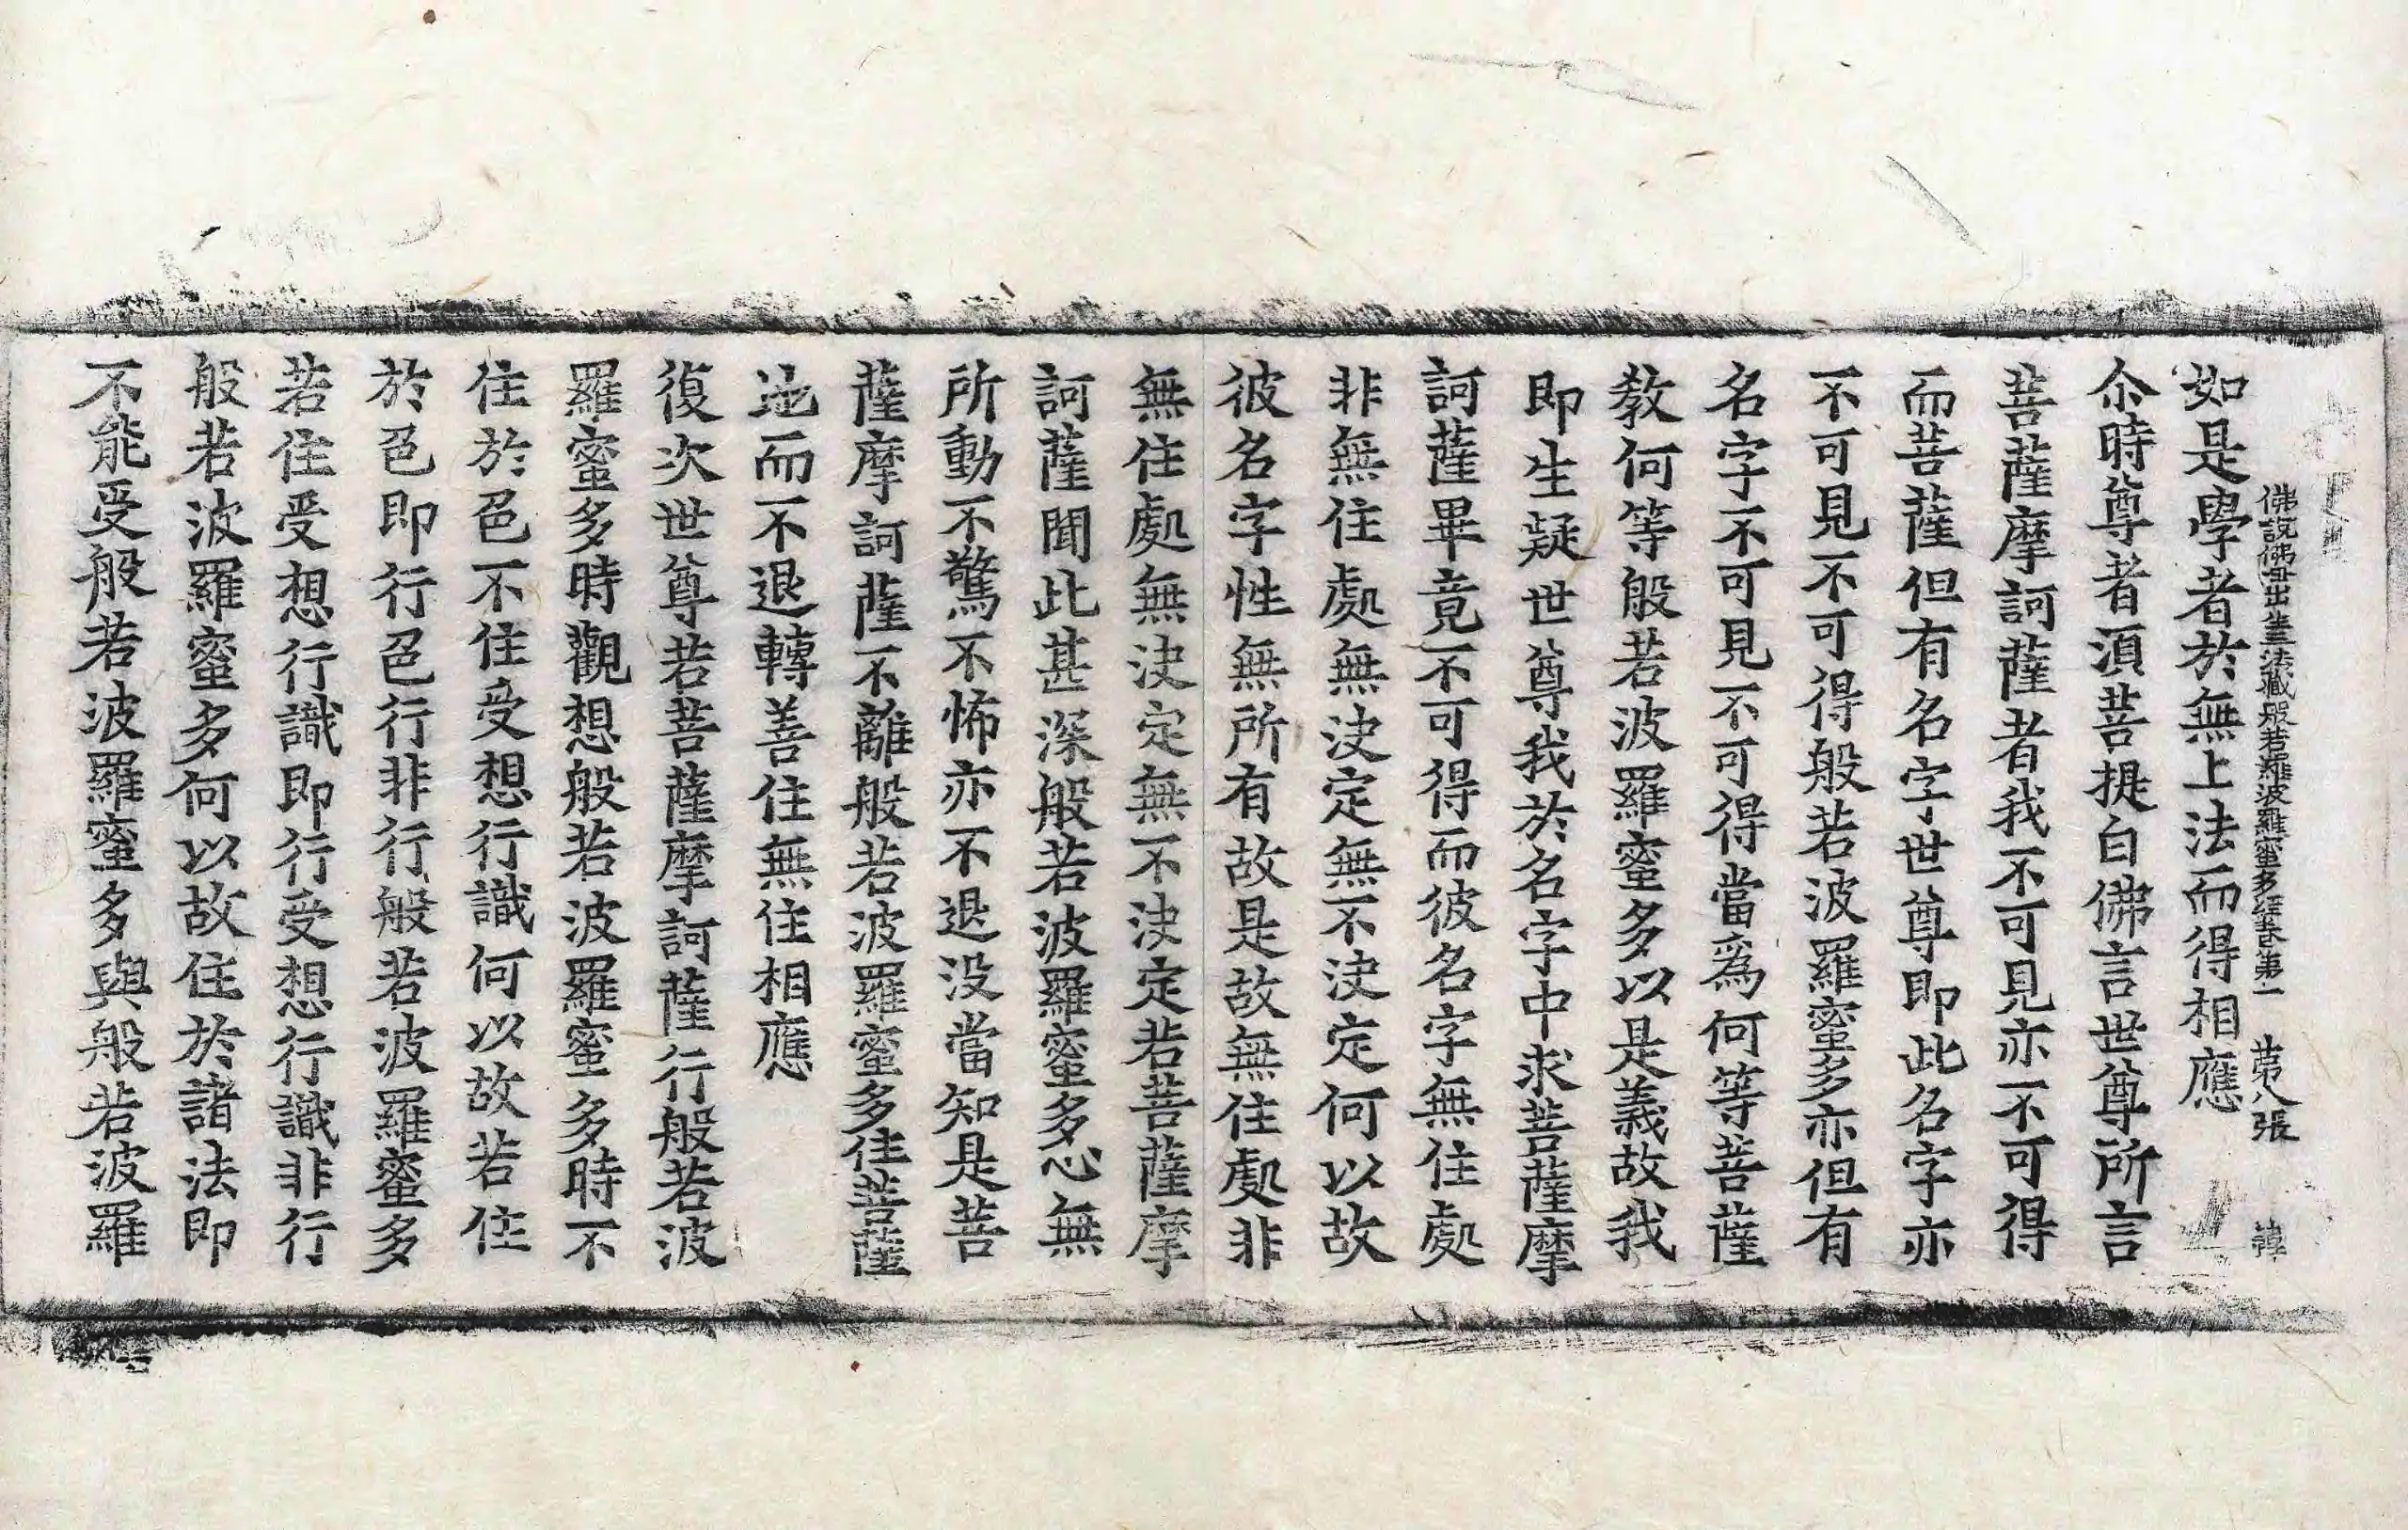 佛說佛毋出生三法藏般若羅波羅蜜多經卷第一 第八張 韓
如是學者於無上法而得相應
尒時尊者湏菩提白佛言世尊所言
菩薩摩訶薩者我不可見亦不可得
而菩薩但有名字世尊即此名字亦
不可見不可得般若波羅蜜多亦但有
名字不可見不可得當爲何等菩薩
教何等般若波羅蜜多以是義故我
即生疑世尊我於名字中求菩薩摩
訶薩畢竟不可得而彼名字無住處
非無住處無決定無不決定何以故
彼名字性無所有故是故無住處非
無住處無決定無不決定若菩薩摩
訶薩聞此甚深般若波羅蜜多心無
所動不驚不怖亦不退没當知是菩
薩摩訶薩不離般若波羅蜜多住菩薩
地而不退轉善住無住相應
復次世尊若菩薩摩訶薩行般若波
羅蜜多時觀想般若波羅蜜多時不
住於色不住受想行識何以故若住
於色即行色行非行般若波羅蜜多
若住受想行識即行受想行識非行
般若波羅蜜多何以故住於諸法即
不能受般若波羅蜜多與般若波羅